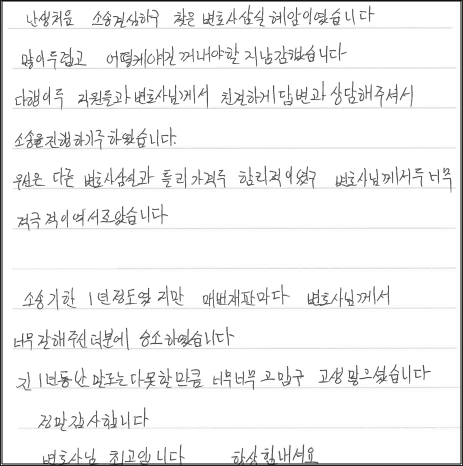 난생처음 소송결심하구 찾은 변호사삼실 혜안이였습니다
많이두렵고 어떻게얘긴 꺼내야할지남감했습니다
다행이두 직원들과 변호사님께서 친절하게답변과 상담해주셔서
소송을진행하기루하였습니다.
우선은 다른 변호사삼실과 틀리가격두 합리적이였구 변호사님께서두너무
적극적이여서조았습니다
소송기한 1년정도였지만 매번재판마다 변호사님께서
너무잘해주신덕분에 승소하였습니다
긴1년동안 말로는다못한만큼 너무너무고맙구 고생많으셨습니다
정말감사합니다
변호사님 최고입니다 항상힘내셔요